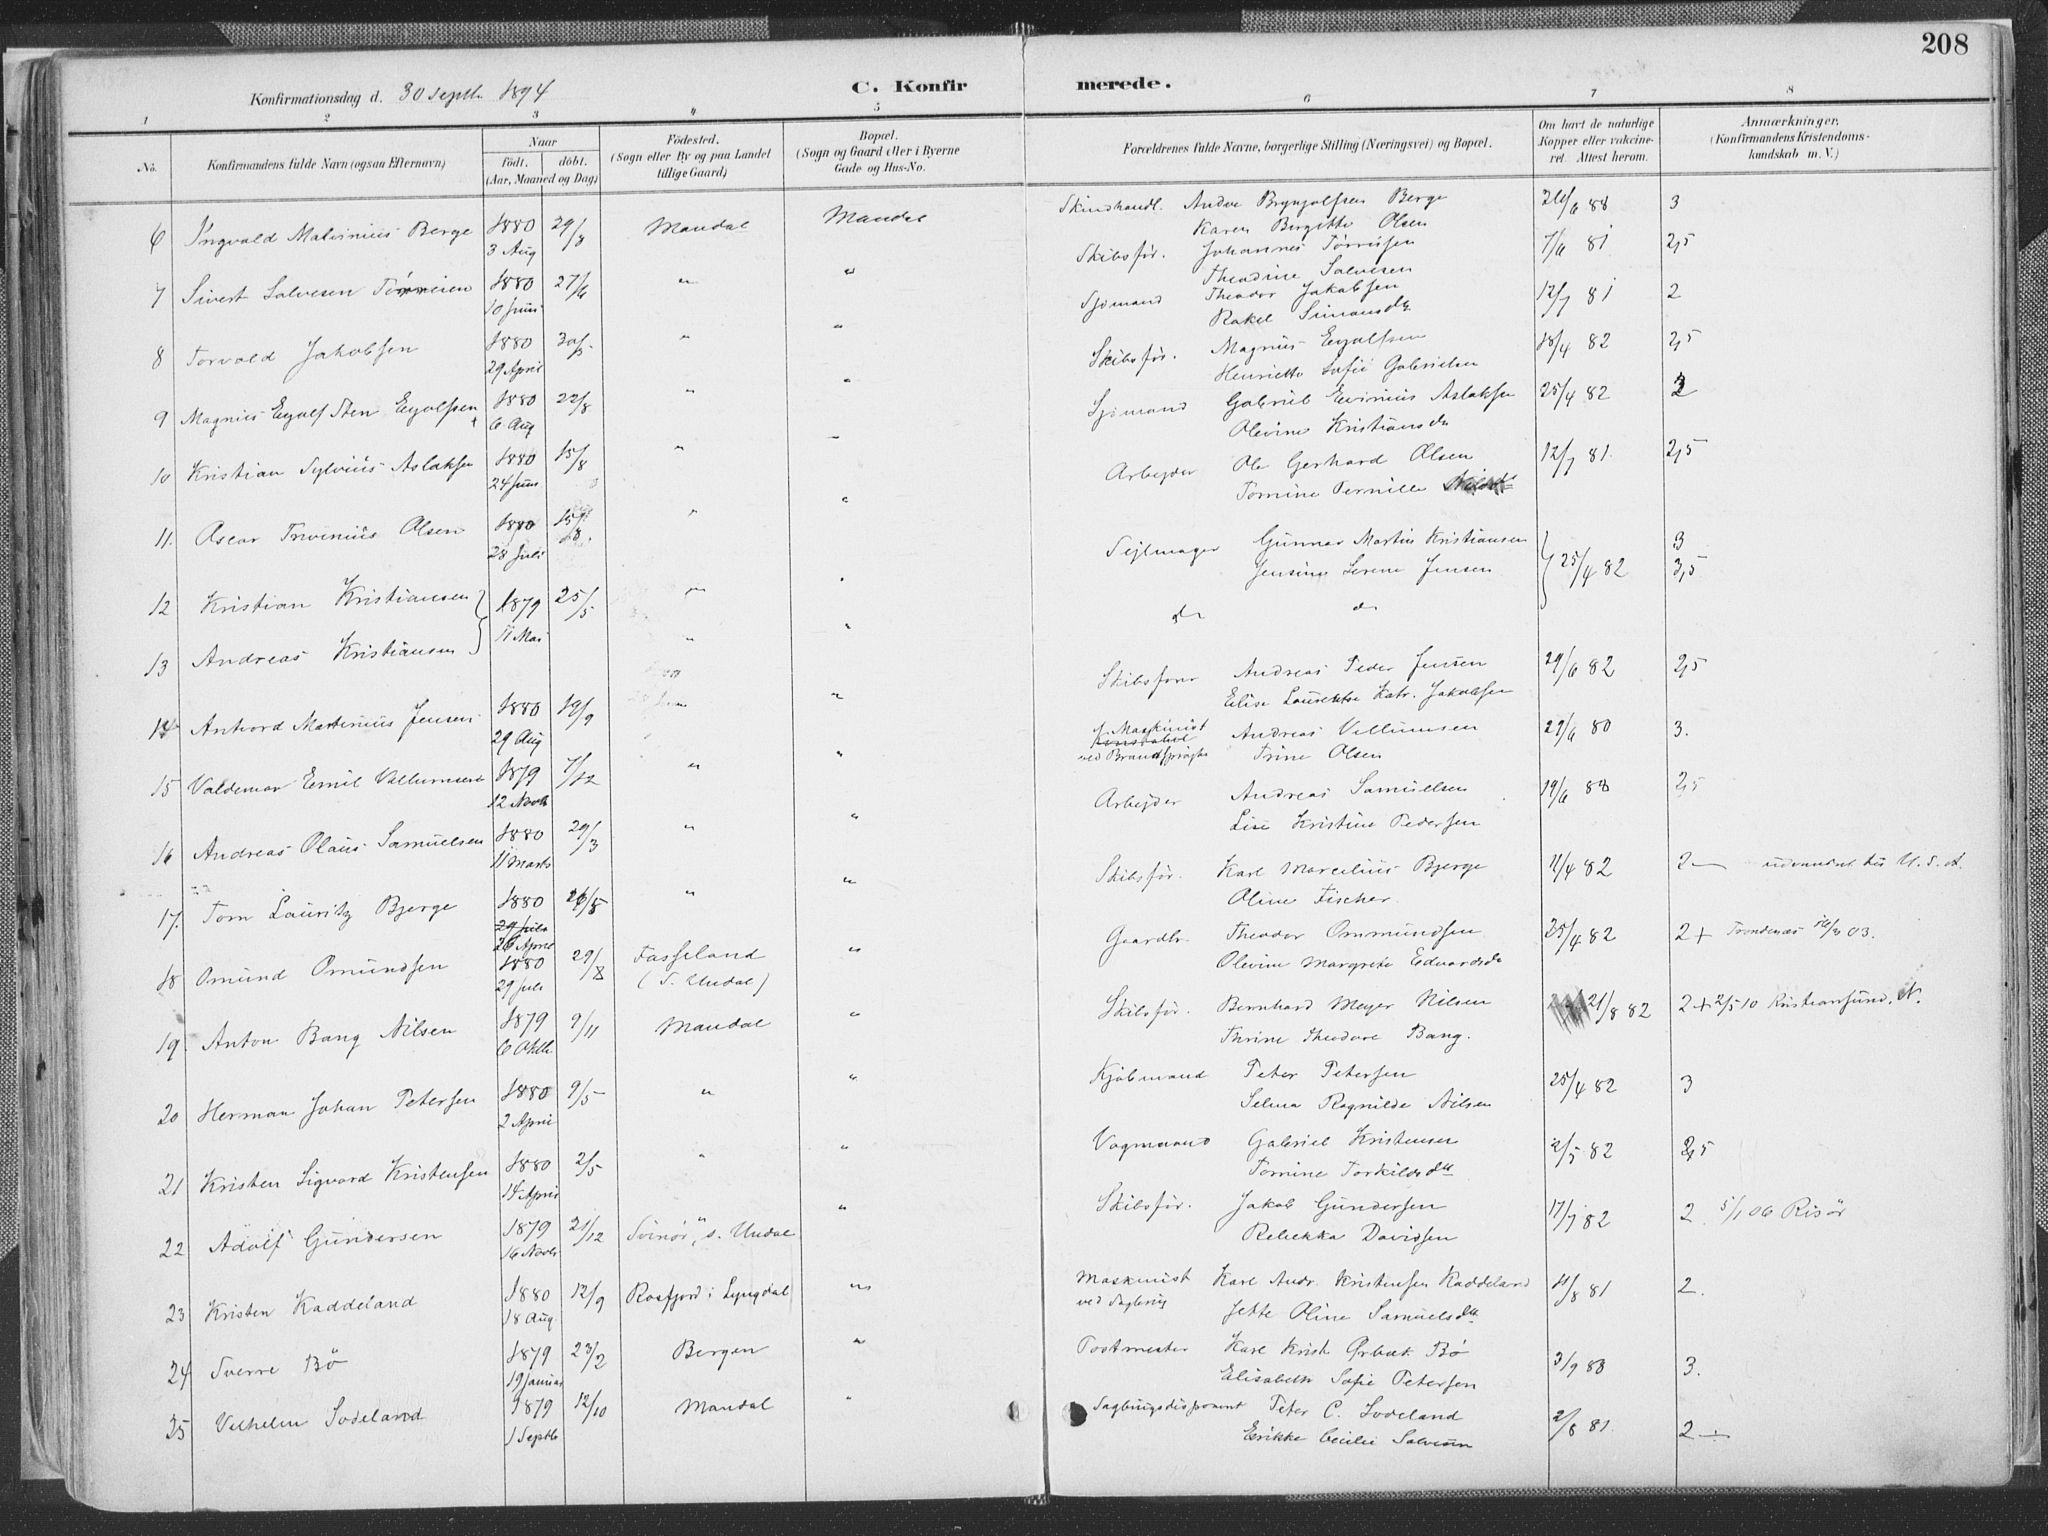 208
Konfirmationsdag d. 30 Septb. 1894
C. Konfirmerede.
1 2 3 4 5 6 7 8
No.
Konfirmandens fulde Navn (ogsaa Efternavn)
Naar
födt. döbt.
(Aar, Maaned og Dag)
Födested.
(Sogn eller By og paa Landet
tillige Gaard)
Bopæl.
(Sogn og Gaard eller i Byerne
Gade og Hus-No.
Forældrenes fulde Navne, borgerlige Stilling (Næringsvei) og Bopæl.
Om havt de naturlige
Kopper eller vakcine-
ret. Attest herom.
Anmærkninger.
(Konfirmandens Kristendoms-
kundskab m. V.)
6 Ingvald Malvinius Berge 1880 29/8 Mandal Mandal Skindhandl. Andre Brynjolfsen Berge 3
3 Aug Karen Birgitte Olsen
7 Sivert Salvesen 1880 27/6 " " Skibsför. Johannes Törrisen 7/6 81 2,5
10 Juni Theodine Salvesen
8 Torvald Jakobsen 1880 30/5 " " Sjömand Theodor Jakobsen 12/7 81 2
29 April Rakel Simonsdtr
9 Magnus Eyolf Sten Eyolfsen 1880 22/8 " " Skibsför. Magnus Eyolfsen 18/4 82 2,5
6 Aug Henriette Sofie Gabrielsen
10 Kristian Sylvius Aslaksen 1880 15/8 " " Sjömand Gabriel Evinius Aslaksen 25/4 82
24 Juni Olevine Kristiansdtr
11. Oscar Trivinius Olsen 1880 15/8. " " Arbejder Ole Gerhard Olsen 12/7 81. 2,5
28 Juli Tomine Pernille
12 Kristian Kristiansen 1879 25/5 " " Sejlmager Gunnar Martin Kristiansen 25/4 82 3
11 Mai Jensine Serene Jensen 3,5
13 Andreas Kristiansen " " do do
14 Antvord Martinius Jensen 1880 19/9 " Skibsförer Andreas Peder Jensen 29/6 82 2,5
29 Aug Elise Laurentse Katr. Jakobsen
15 Valdemar Emil Vellumsen 1879 7/12 " " Maskinist Andreas Vellumsen 29/6 80 3.
12 Novb ved Brandspröjte Trine Olsen
16 Andreas Olaus Samuelsen 1880 29/3 " " Arbejder Andreas Samuelsen 19/6 2,5
11 Marts Lise Kristine Pedersen
17. Tom Lauritz Bjerge 1880 " " Skibsför. Karl Marcelius Bjerge 11/4 82 2- udvandret til U.S.A.
26 April Oline Fischer
18 Omund Omundsen 1880 29/8 Fasseland " Gaardbr. Theodor Ommundsen 25/4 82 2+ Trondenæs 03.
29 Juli (S. Undal) Olevine Margrete Edvardsdtr
19. Anton Bang Nilsen 1879 9/11 Mandal " Skibsför. Bernhard Meyer Nilsen 21/8 82 2+ 2/5 10 Kristiansund N.
6 Oktb Thrine Theodore Bang.
20 Herman Johan Petersen 1880 9/5 " " Kjöbmand Peter Petersen 25/4 82 3
2 April Selma Ragnilde Nilsen
21 Kristen Sigvard Kristensen 1880 2/5 " " Vognmand Gabriel Kristensen 2/5 82 2,5
14 April Tomine Torkildsdtr
22 Adolf Gundersen 1879 21/12 Svinör, S. Undal " Skibsför. Jakob Gundersen 17/7 82 2. 5/1 06 Risör
16 Novb Rebekka Davidsen
23 Kristen Kaddeland 1880 12/9 Rosfjord i Lyngdal " Maskinist Karl Andr. Kristensen Kaddeland 11/8 81 2.
18 Aug. ved Sagbrug Jette Oline Samuelsdtr
24 Sverre Bö 1879 23/2 Bergen " Postmester Karl Krist. Ørbæk Bö 3/9 3.
19 Januar Elisabeth Sofie Petersen
25 Vilhelm Sodeland 1879 12/10 Mandal " Sagbrugsdisponent Peter C. Sodeland 2/8 81. 2-
1 Septb Erikke Cecilie Salvesen